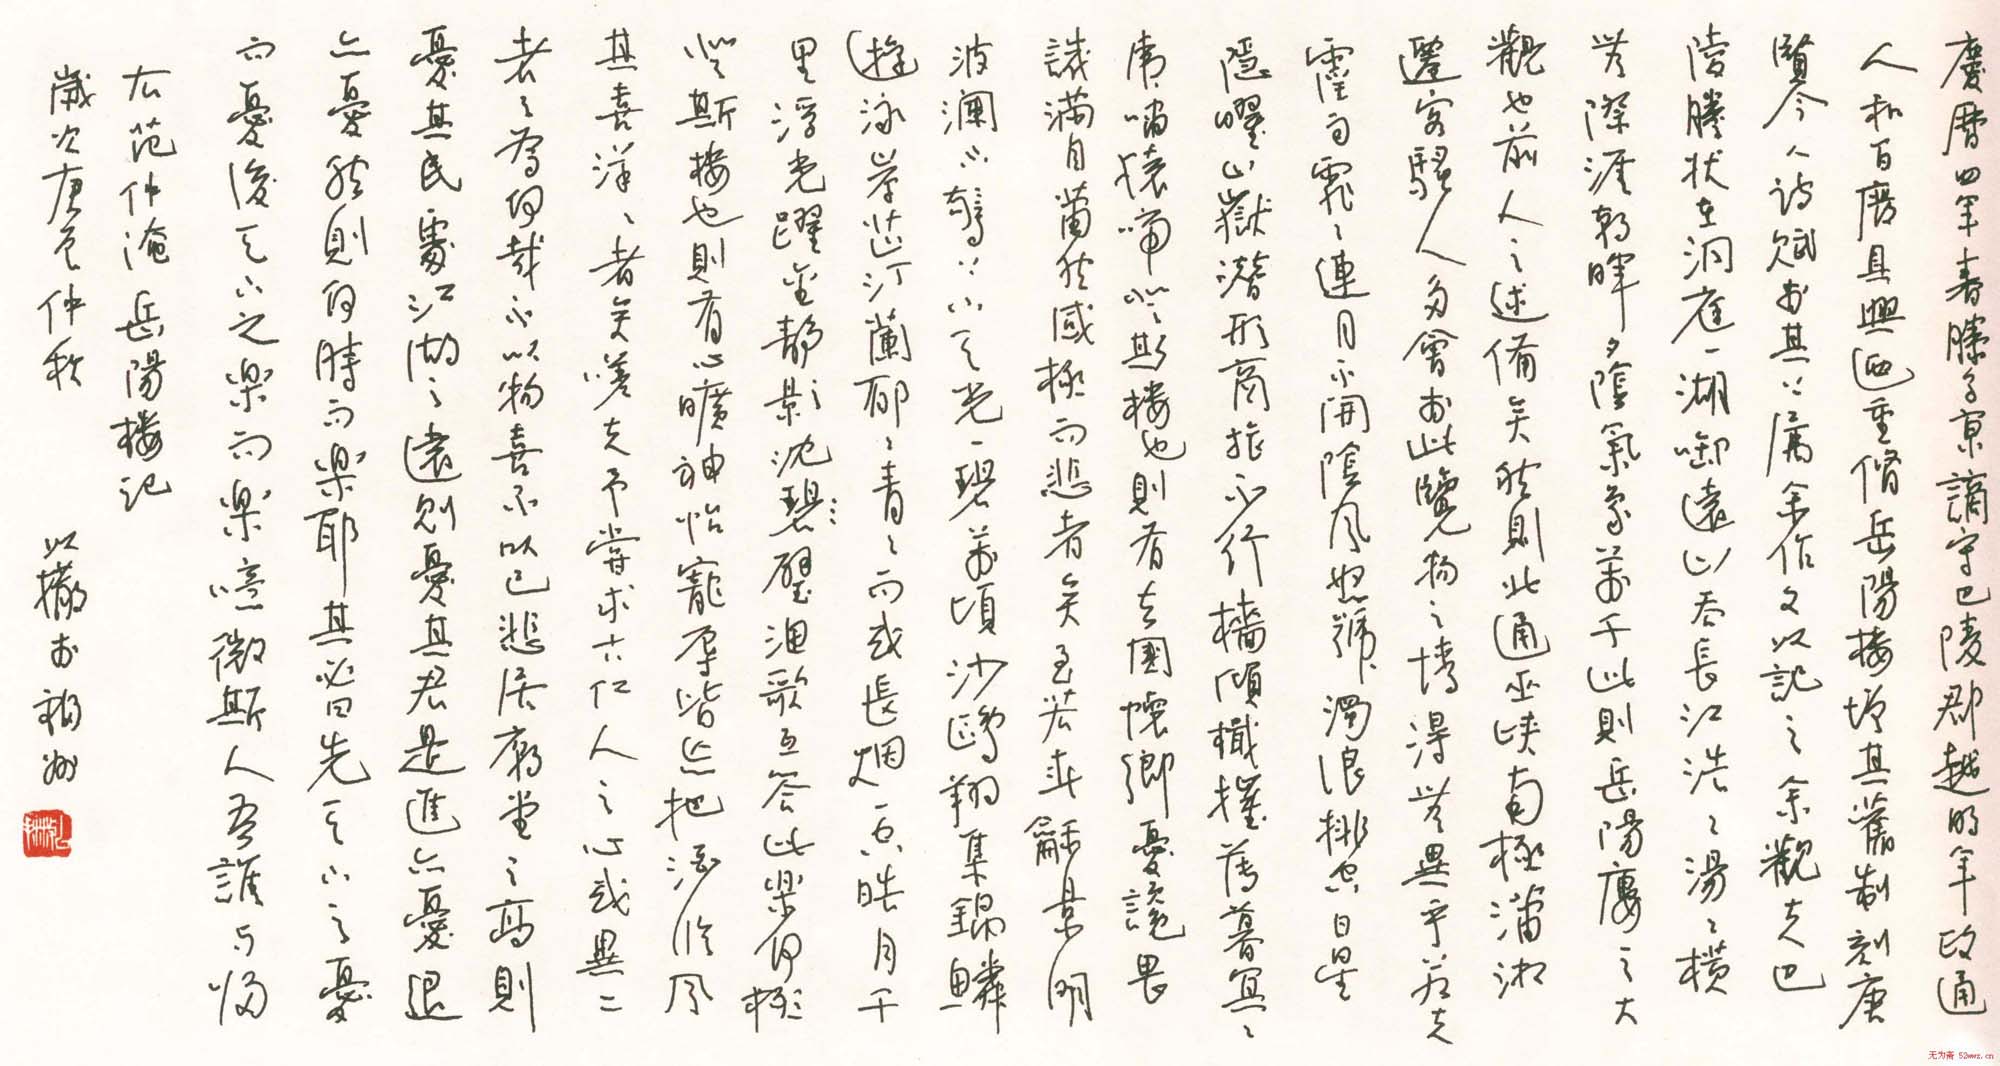 慶暦四年春滕子京謫守巴陵郡越明年政通
人和百廢具興迺重修岳陽楼增其舊制刻唐
賢今人詩賦於其上屬余作文以記之余觀夫巴
陵勝狀在洞庭一湖銜遠山吞長江浩〻湯〻橫
無際涯朝暉夕陰氣象萬千此則岳陽樓之大
觀也前人之述備矣然則北通巫峽南極瀟湘
遷客騷人多會於此覽物之情得無異乎若夫
霪雨霏〻連月不開陰風怒號濁浪排空日星
隱曜山嶽潛形商旅不行檣傾檝摧薄暮冥〻
虎嘯猿啼登斯楼也則有去國懷鄉憂讒畏
譏滿目蕭然感極而悲者矣至若春龢景明
波瀾不驚上下天光一碧萬頃沙鷗翔集錦鱗
游泳岸芷汀蘭郁〻青〻而或長烟一空皓月千
里浮光躍金靜影沈碧璧漁歌互答此楽何極
登斯楼也則有心曠神怡寵辱皆忘把酒臨風
其喜洋〻者矣嗟夫予嘗求古仁人之心或異二
者之為何哉不以物喜不以己悲居廟堂之高則
憂其民處江湖之遠則憂其君是進亦憂退
亦憂然則何時而楽耶其必曰先天下之憂
而憂後天下之楽而楽噫微斯人吾誰與歸
右范仲淹岳陽楼記
歲次庚辰仲秋 以撒於福州
无为斋 52wwz.cn